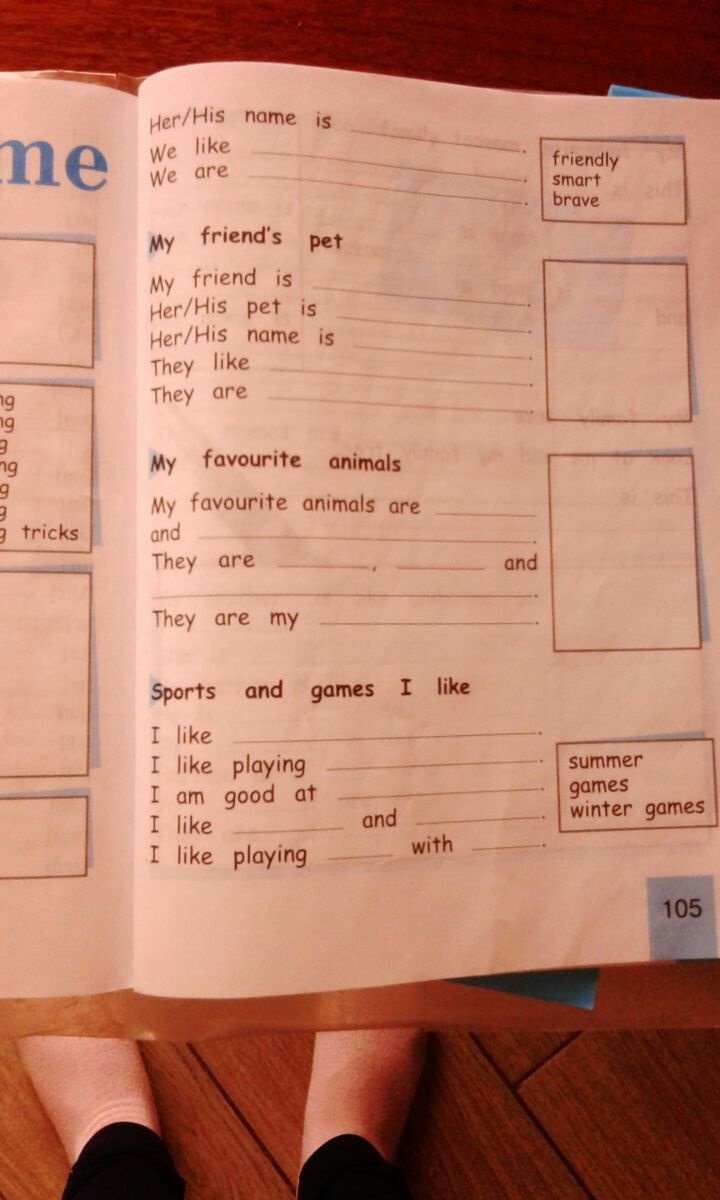 me
ng
ng
g
ng
g
g
g tricks
Her/His name is ____________.
We like ____________.
We are ____________.
friendly
smart
brave
My friend's pet
My friend is ____________.
Her/His pet is ____________.
Her/His name is ____________.
They like ____________.
They are ____________.
My favourite animals
My favourite animals are ________
and ____________.
They are ________, ________ and
____________.
They are my ____________.
Sports and games I like
I like ____________.
I like playing ____________.
I am good at ____________.
I like ________ and ________.
I like playing ______ with ______.
summer
games
winter games
105